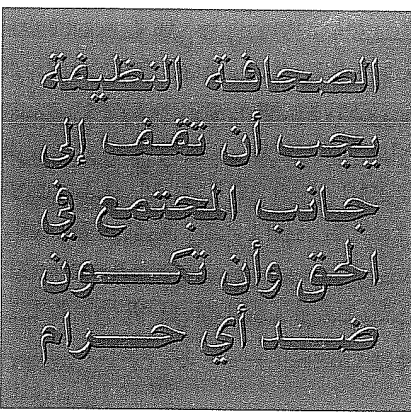 الصحافة النظيفة
يجب أن تقف إلى
جانب المجتمع في
الحق وأن تكون
ضد أي حرام